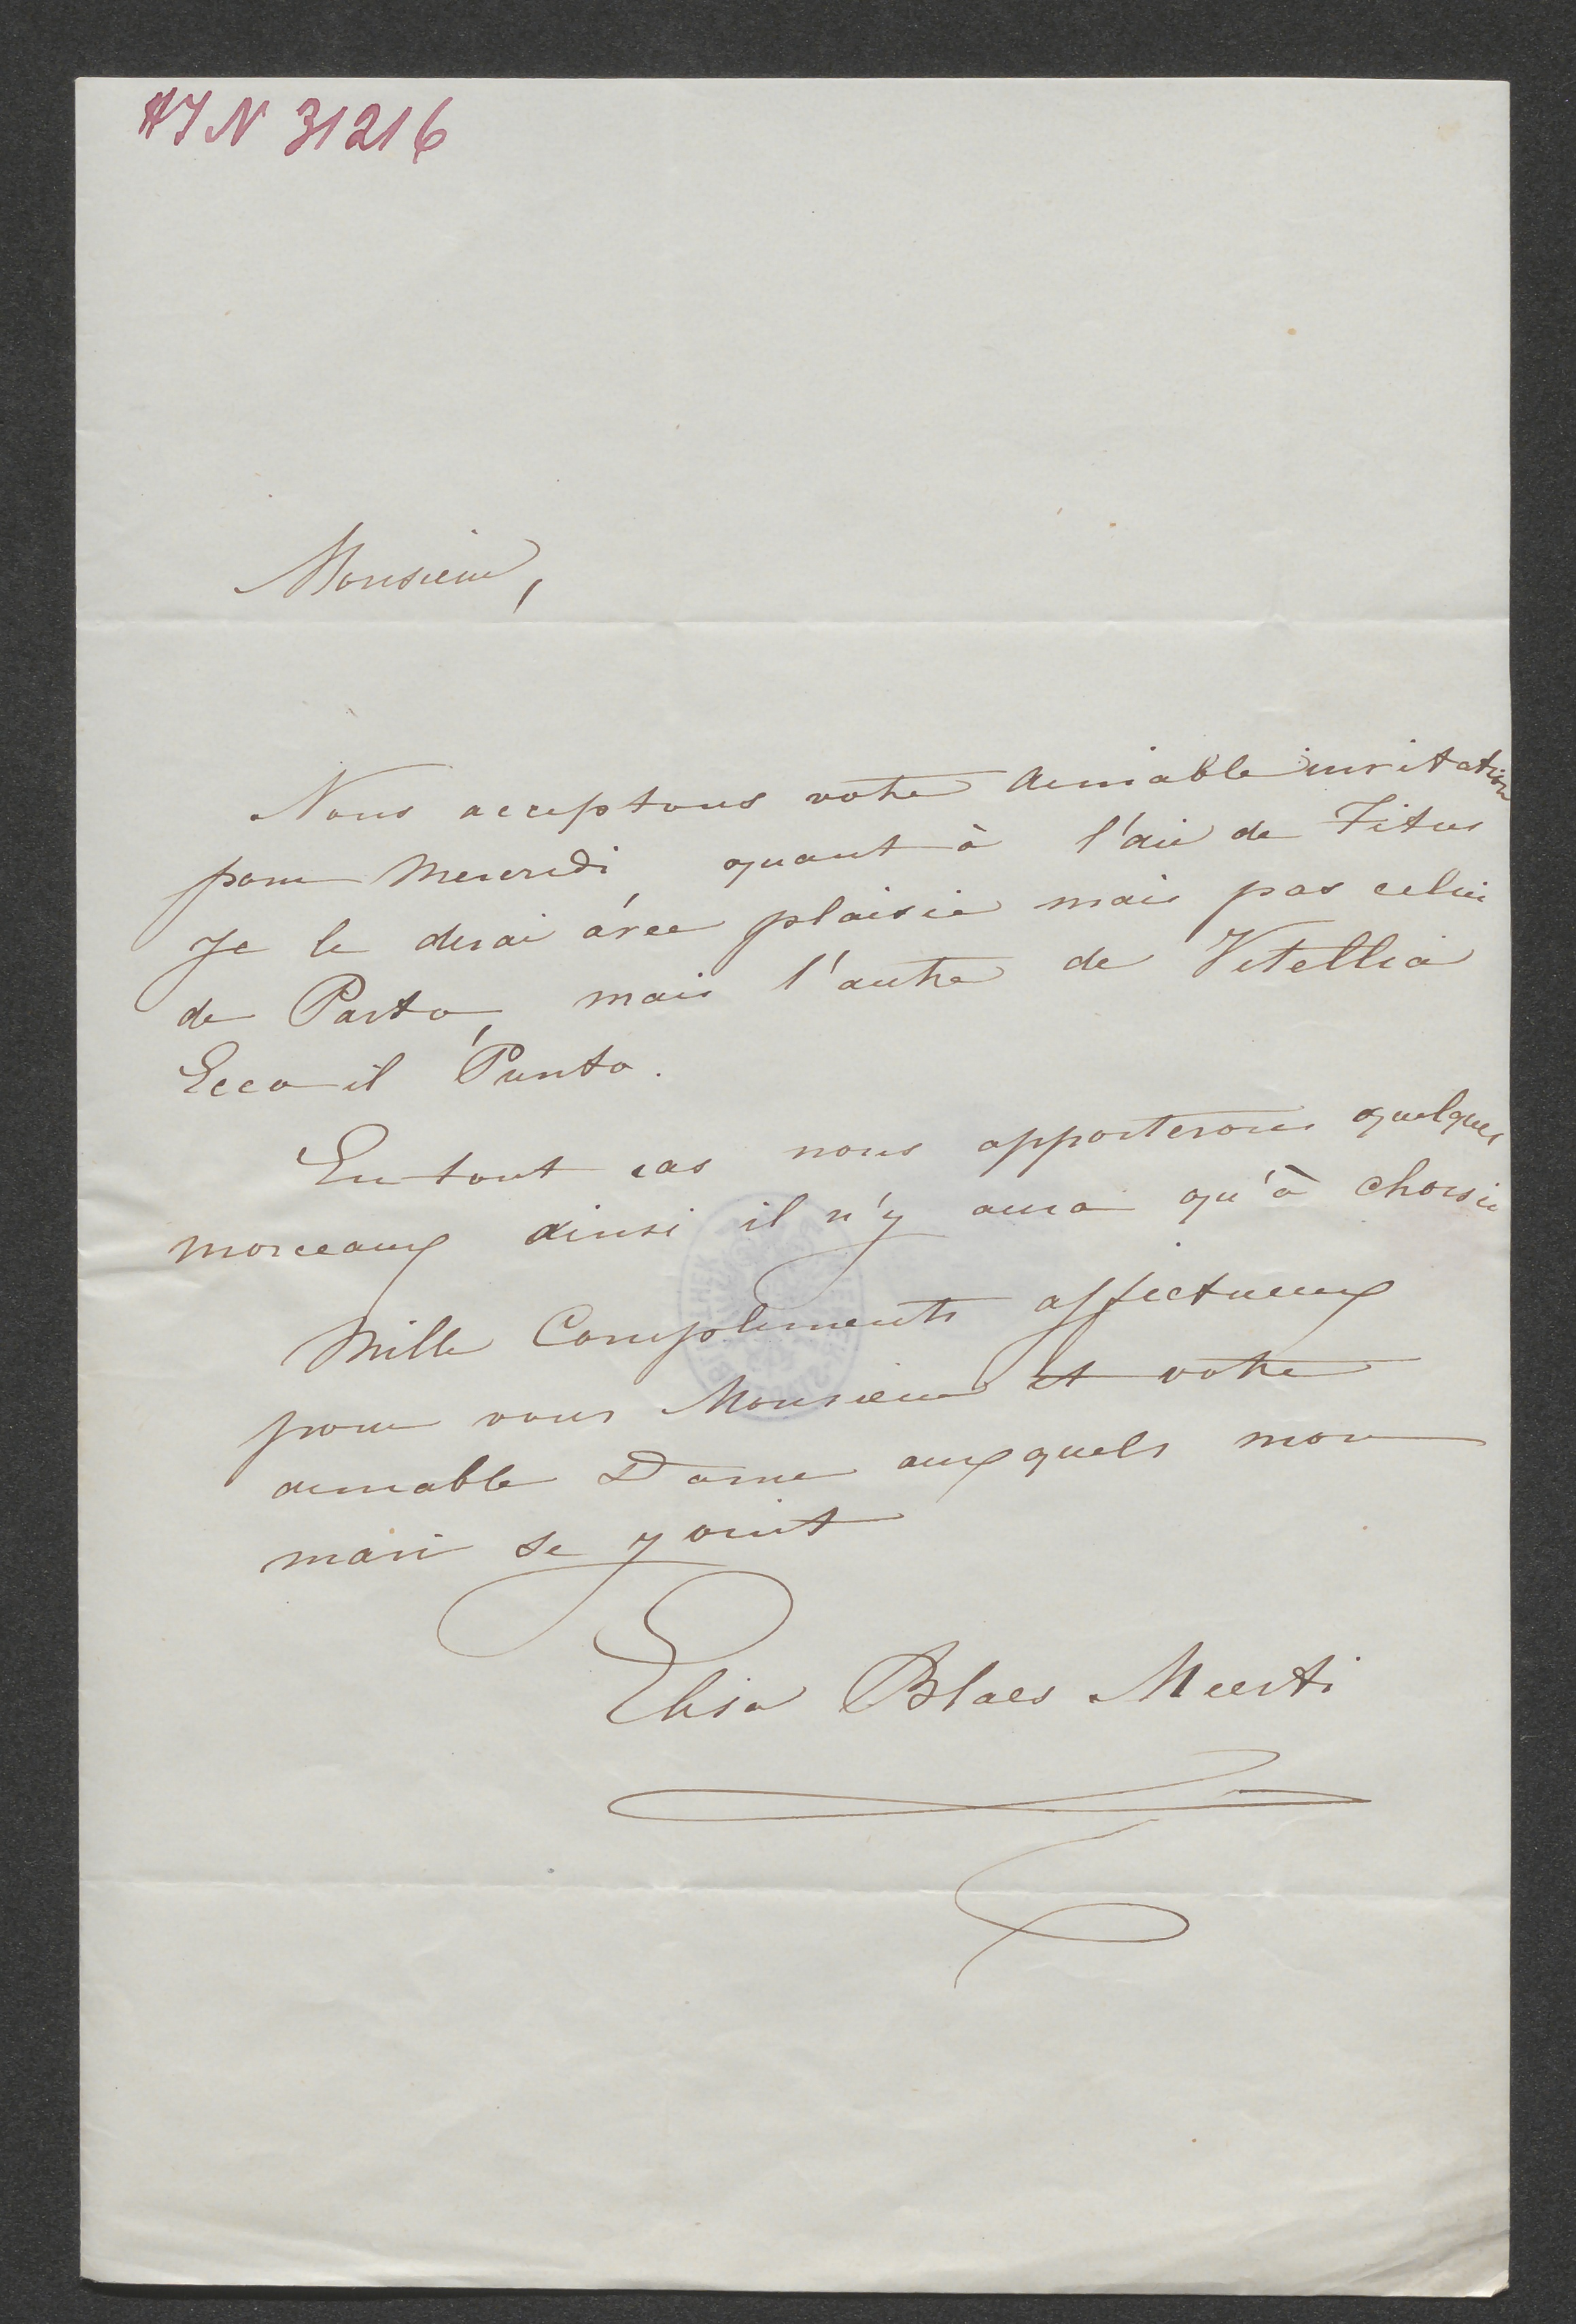 HIN 31216
Monsieur,
Nous acceptons votre aimable invitation
pour Mercredi, quant à l'air de Titus
Je le dirai avec plaisir mais pas celui
de Parto, mais l'autre de Vitellia
Ecco il Punto.
En tout cas nous apporterons quelques
morceaux ainsi il n'y aura qu'à choisir
Mille Compliments affectueux
pour vous Monsieur et votre
aimable Dame auxquels mon
mari se joint
Elisa Blaes Meerti